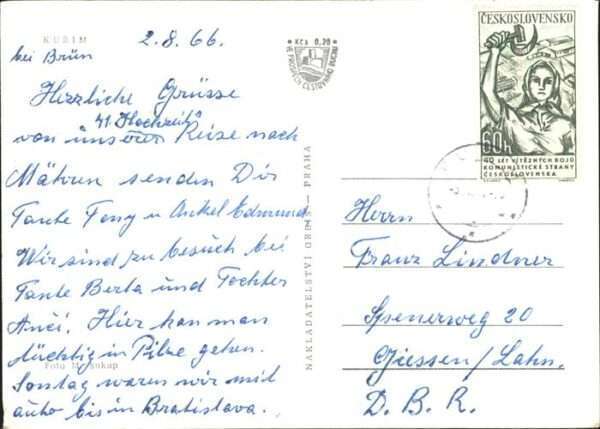 KUŘIM
2.8.66.
bei Brün
Herzliche Grüsse
41. Hochzeits
von unserer Reise nach
Mähren senden Dir
Tante Fany u Onkel Edmund
Wir sind zu besuch bei
Tante Berta und Tochter
Anči. Hier kan man
tüchtig in Pilze gehen.
Sontag waren wir mit
auto bis in Bratislava.
Foto M.
Kčs 0,20
VE PROSPĚCH CESTOVNÍHO RUCHU
NAKLADATELSTVÍ ORBIS — PRAHA
ČESKOSLOVENSKO
60h
40 LET VÍTĚZNÝCH BOJŮ
KOMUNISTICKÉ STRANY
ČESKOSLOVENSKA
Herrn
Franz Lindner
Spenerweg 20
Giessen/Lahn.
D.B.R.